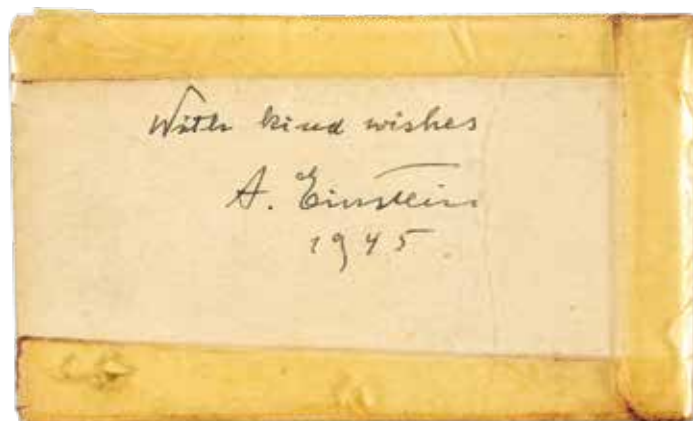 With kind wishes
A. Einstein
1945